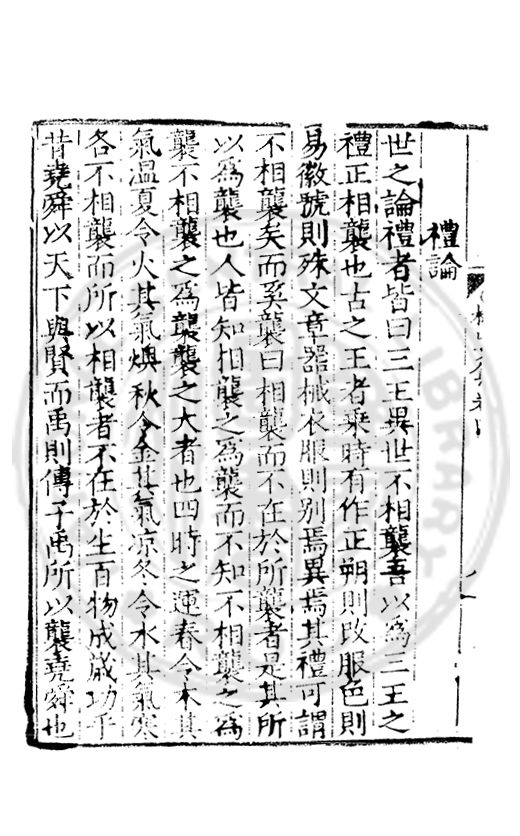 禮論
世之論禮者皆曰三王異世不相襲吾以爲三王之
禮正相襲也古之王者乘時有作正朔則改服色則
易徽號則殊文章器械衣服則别焉異焉其禮可謂
不相襲矣而奚襲曰相襲而不在於所襲者是其所
以爲襲也人皆知相襲之爲襲而不知不相襲之爲
襲不相襲之爲襲襲之大者也四時之運春令木其
氣温夏令火其氣燠秋令金其氣凉冬令水其氣寒
各不相襲而所以相襲者不在於生百物成歲功乎
昔堯舜以天下與賢而禹則傳子禹所以襲堯舜也